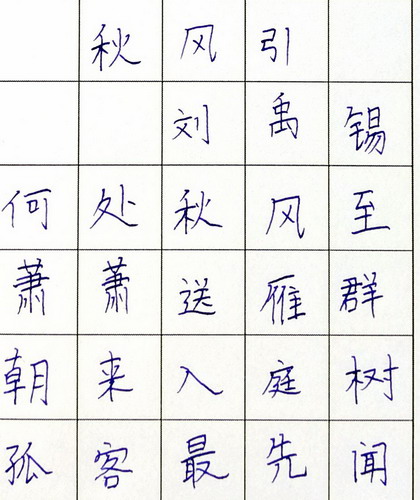 秋风引
刘禹锡
何处秋风至
萧萧送雁群
朝来入庭树
孤客最先闻